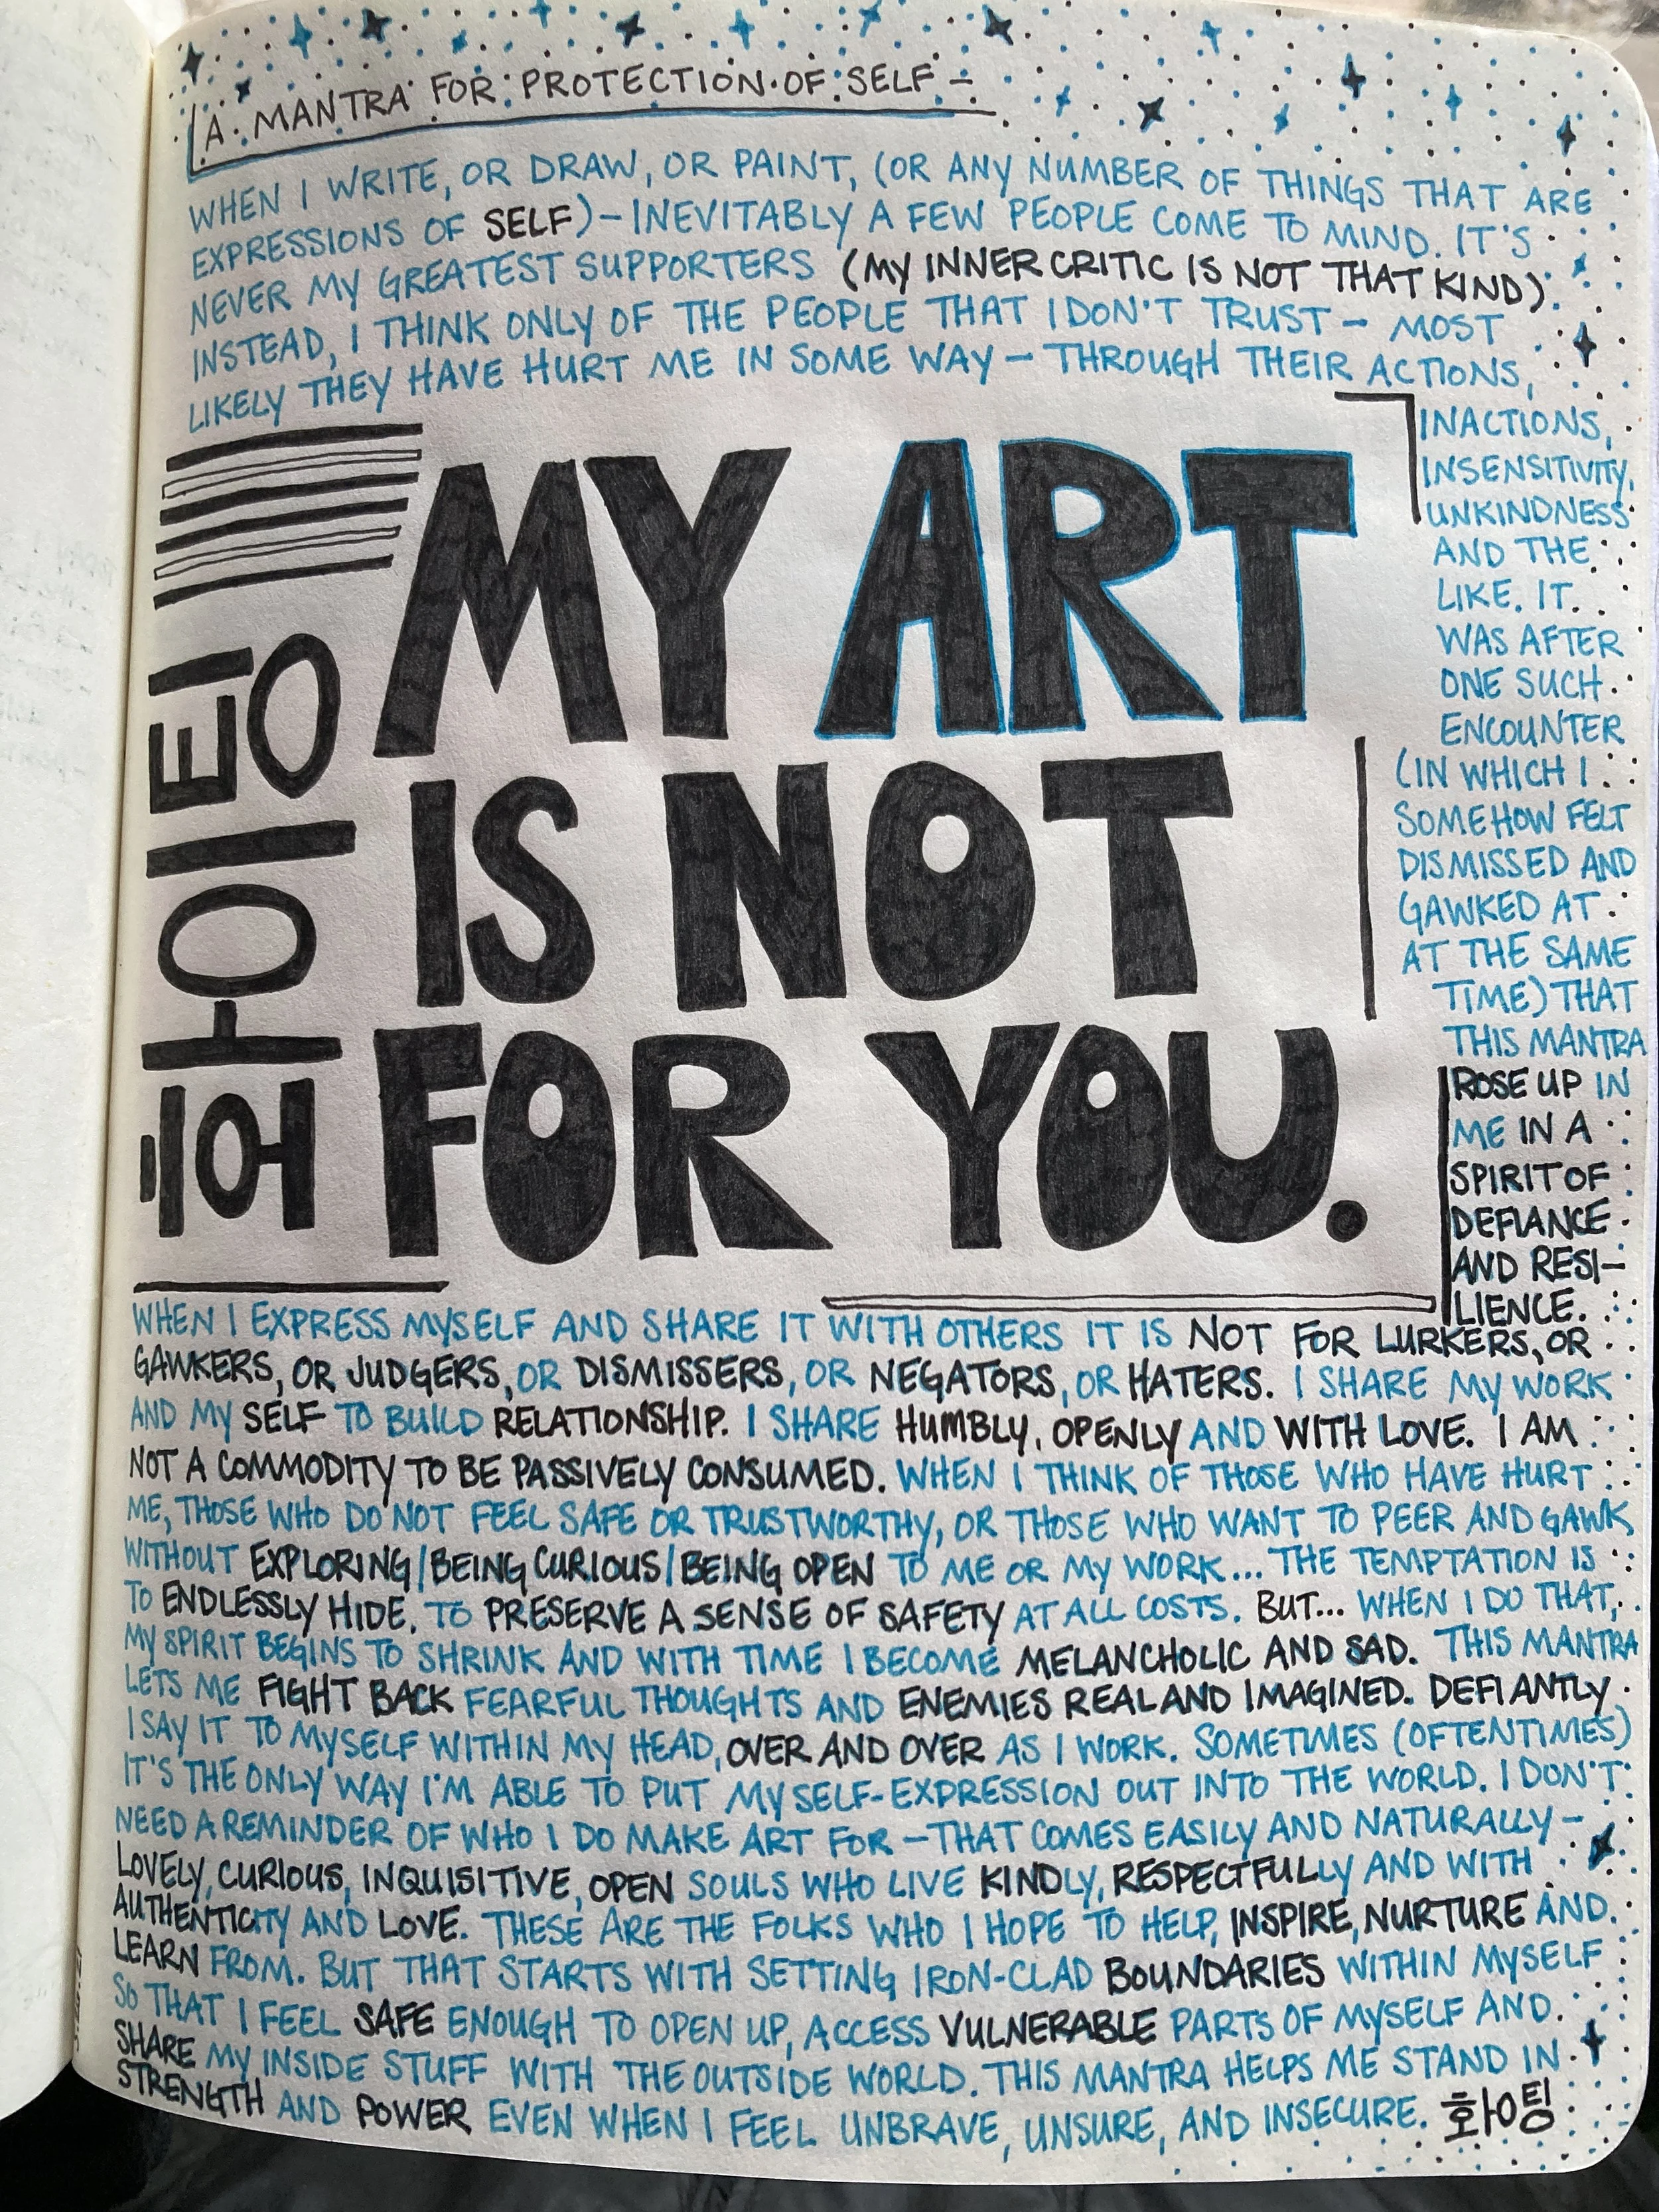 A MANTRA FOR PROTECTION OF SELF –
WHEN I WRITE, OR DRAW, OR PAINT, (OR ANY NUMBER OF THINGS THAT ARE
EXPRESSIONS OF SELF) – INEVITABLY A FEW PEOPLE COME TO MIND. IT'S
NEVER MY GREATEST SUPPORTERS (MY INNER CRITIC IS NOT THAT KIND).
INSTEAD, I THINK ONLY OF THE PEOPLE THAT I DON'T TRUST – MOST
LIKELY THEY HAVE HURT ME IN SOME WAY – THROUGH THEIR ACTIONS,
INACTIONS,
INSENSITIVITY,
UNKINDNESS
AND THE
LIKE. IT
WAS AFTER
ONE SUCH
ENCOUNTER
(IN WHICH I
SOMEHOW FELT
DISMISSED AND
GAWKED AT
AT THE SAME
TIME) THAT
THIS MANTRA
ROSE UP IN
ME IN A
SPIRIT OF
DEFIANCE
AND RESI–
LIENCE.
화이팅
MY ART
IS NOT
FOR YOU.
WHEN I EXPRESS MYSELF AND SHARE IT WITH OTHERS IT IS NOT FOR LURKERS, OR
GAWKERS, OR JUDGERS, OR DISMISSERS, OR NEGATORS, OR HATERS. I SHARE MY WORK
AND MY SELF TO BUILD RELATIONSHIP. I SHARE HUMBLY, OPENLY AND WITH LOVE. I AM
NOT A COMMODITY TO BE PASSIVELY CONSUMED. WHEN I THINK OF THOSE WHO HAVE HURT
ME, THOSE WHO DO NOT FEEL SAFE OR TRUSTWORTHY, OR THOSE WHO WANT TO PEER AND GAWK
WITHOUT EXPLORING/BEING CURIOUS/BEING OPEN TO ME OR MY WORK... THE TEMPTATION IS
TO ENDLESSLY HIDE. TO PRESERVE A SENSE OF SAFETY AT ALL COSTS. BUT... WHEN I DO THAT,
MY SPIRIT BEGINS TO SHRINK AND WITH TIME I BECOME MELANCHOLIC AND SAD. THIS MANTRA
LETS ME FIGHT BACK FEARFUL THOUGHTS AND ENEMIES REAL AND IMAGINED. DEFIANTLY
I SAY IT TO MYSELF WITHIN MY HEAD, OVER AND OVER AS I WORK. SOMETIMES (OFTENTIMES)
IT'S THE ONLY WAY I'M ABLE TO PUT MY SELF-EXPRESSION OUT INTO THE WORLD. I DON'T
NEED A REMINDER OF WHO I DO MAKE ART FOR – THAT COMES EASILY AND NATURALLY –
LOVELY, CURIOUS, INQUISITIVE, OPEN SOULS WHO LIVE KINDLY, RESPECTFULLY AND WITH
AUTHENTICITY AND LOVE. THESE ARE THE FOLKS WHO I HOPE TO HELP, INSPIRE, NURTURE AND
LEARN FROM. BUT THAT STARTS WITH SETTING IRON-CLAD BOUNDARIES WITHIN MYSELF
SO THAT I FEEL SAFE ENOUGH TO OPEN UP, ACCESS VULNERABLE PARTS OF MYSELF AND
SHARE MY INSIDE STUFF WITH THE OUTSIDE WORLD. THIS MANTRA HELPS ME STAND IN
STRENGTH AND POWER EVEN WHEN I FEEL UNBRAVE, UNSURE, AND INSECURE. 화이팅